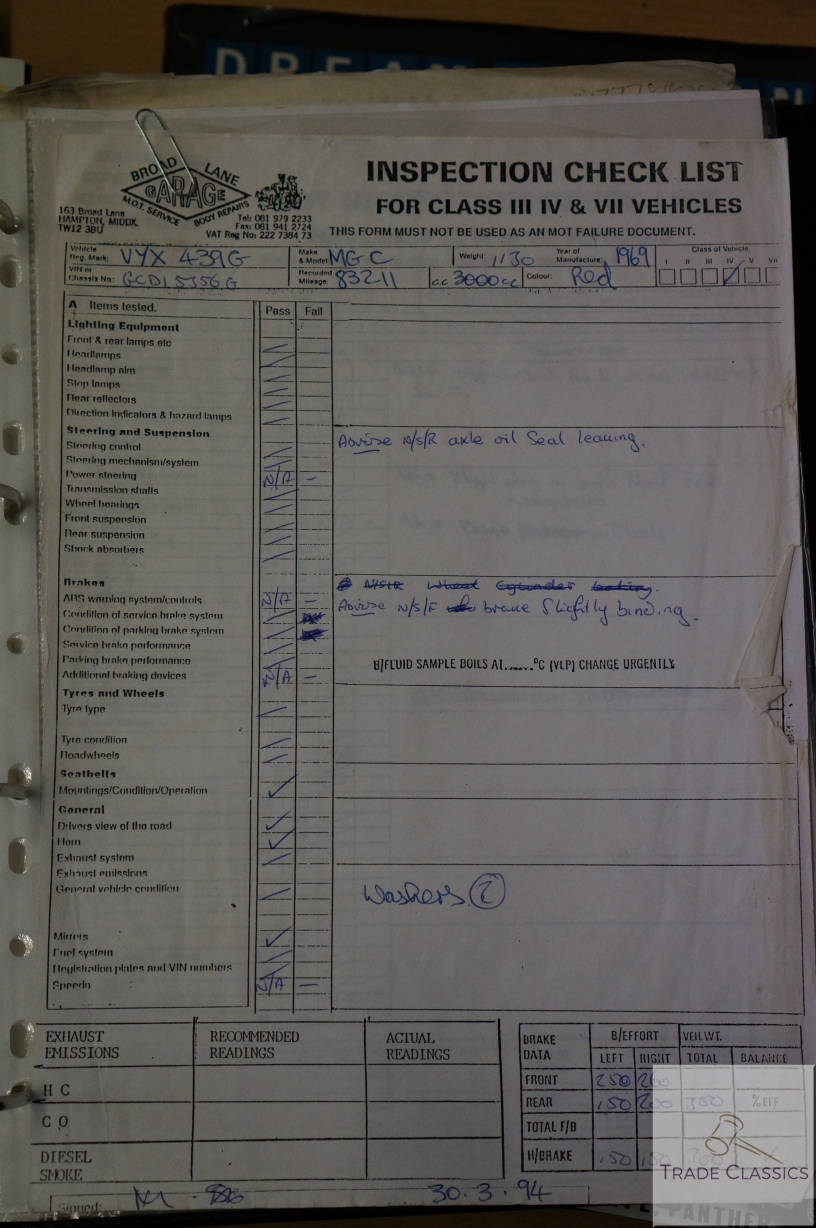 BROAD LANE
GARAGE
M.O.T. SERVICE BODY REPAIRS
163 Broad Lane
HAMPTON, MIDDX.
TW12 3BU
Tel: 081 979 2233
Fax: 081 941 2724
VAT Reg No: 222 7384 73
INSPECTION CHECK LIST
FOR CLASS III IV & VII VEHICLES
THIS FORM MUST NOT BE USED AS AN MOT FAILURE DOCUMENT.
Vehicle Reg. Mark: VYX 439G Make & Model: MG C Weight: 1130 Year of Manufacture: 1969 Class of Vehicle
I II III IV V VII
VIN or Chassis No: GCD15356G Recorded Mileage: 83211 c.c. 3000cc Colour: Red
A Items tested. Pass Fail
Lighting Equipment
Front & rear lamps etc
Headlamps
Headlamp aim
Stop lamps
Rear reflectors
Direction indicators & hazard lamps
Steering and Suspension
Steering control
Advise N/S/R axle oil Seal leaking.
Steering mechanism/system
Power steering N/A –
Transmission shafts
Wheel bearings
Front suspension
Rear suspension
Shock absorbers
Brakes
N/S/R Wheel Cylinder
ABS warning system/controls N/A –
Advise N/S/F brake Slightly binding.
Condition of service brake system
Condition of parking brake system
Service brake performance
Parking brake performance
B/FLUID SAMPLE BOILS AT......°C (VLP) CHANGE URGENTLY
Additional braking devices N/A –
Tyres and Wheels
Tyre type
Tyre condition
Roadwheels
Seatbelts
Mountings/Condition/Operation
General
Drivers view of the road
Horn
Exhaust system
Exhaust emissions
General vehicle condition
Washers 2
Mirrors
Fuel system
Registration plates and VIN numbers
Speedo N/A –
EXHAUST EMISSIONS RECOMMENDED READINGS ACTUAL READINGS
H C
C O
DIESEL SMOKE
BRAKE DATA B/EFFORT VEH.WT.
LEFT RIGHT TOTAL BALANCE
FRONT 250 200
REAR 150 200 350 %EFF
TOTAL F/B
H/BRAKE 150
Signed: 30.3.94
TRADE CLASSICS
PANTHER